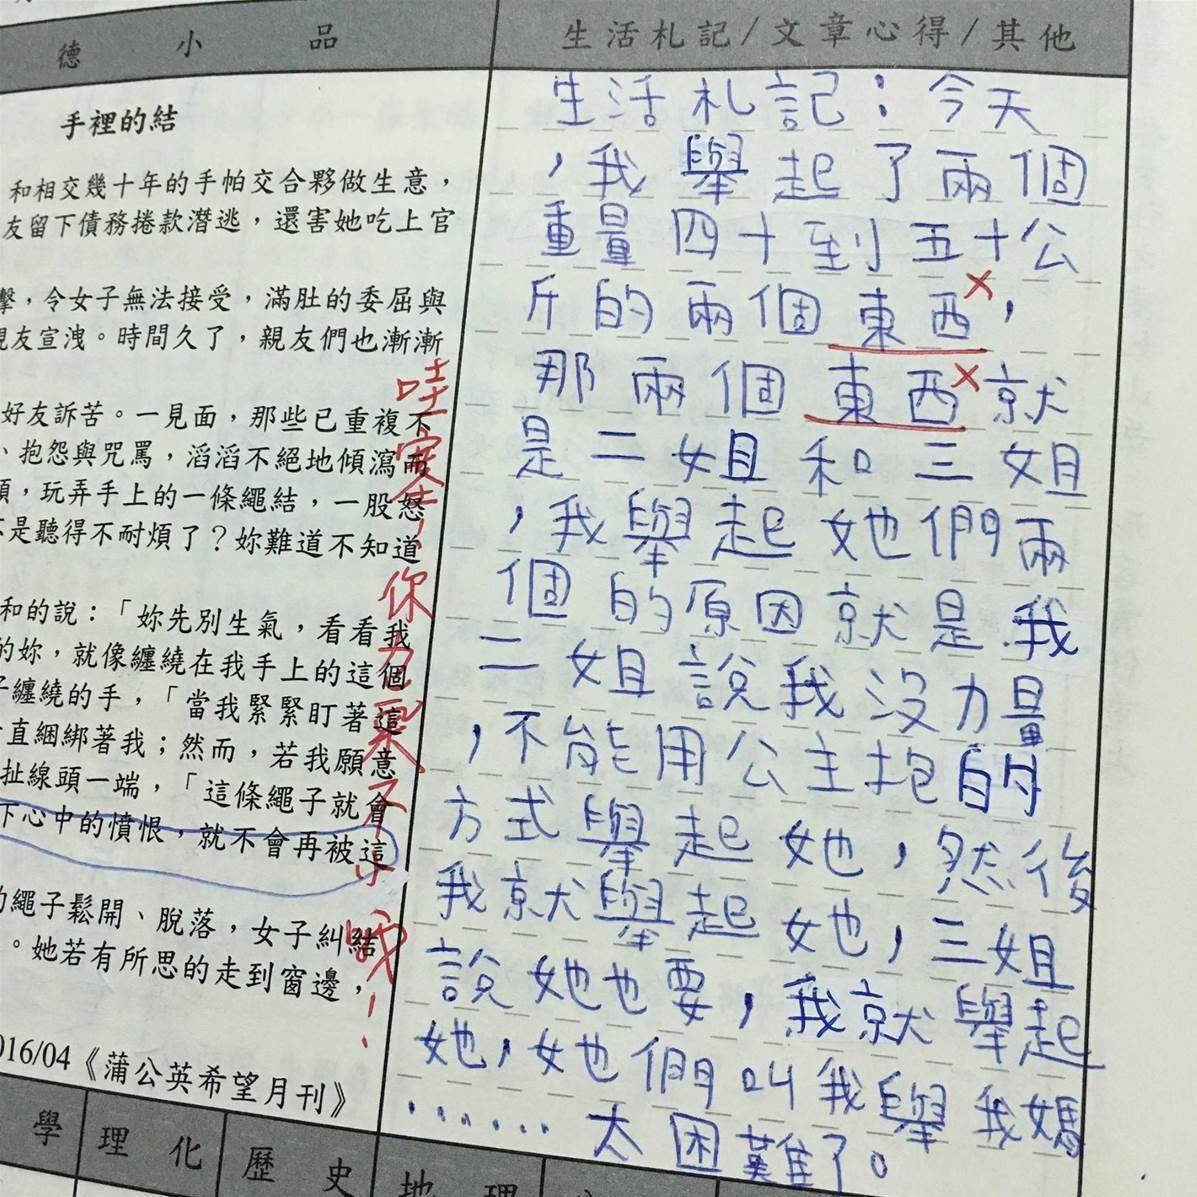 德 小 品
生活札記/文章心得/其他
手裡的結
和相交幾十年的手帕交合夥做生意，
友留下債務捲款潛逃，還害她吃上官
擊，令女子無法接受，滿肚的委屈與
親友宣洩。時間久了，親友們也漸漸
好友訴苦。一見面，那些已重複不
、抱怨與咒罵，滔滔不絕地傾瀉而
頭，玩弄手上的一條繩結，一股怒
不是聽得不耐煩了？妳難道不知道
和的說：「妳先別生氣，看看我
的妳，就像纏繞在我手上的這個
子纏繞的手，「當我緊緊盯著這
直綑綁著我；然而，若我願意
扯線頭一端，「這條繩子就會
下心中的憤恨，就不會再被這
的繩子鬆開、脫落，女子糾結
。她若有所思的走到窗邊，
016/04《蒲公英希望月刊》
哇塞！你力氣不小哦！
生活札記：今天
，我舉起了兩個
重量四十到五十公
斤的兩個東西，
那兩個東西就
是二姐和三姐
，我舉起她們兩
個的原因就是我
二姐說我沒力量
，不能用公主抱的
方式舉起她，然後
我就舉起她，三姐
說她也要，我就舉起
她，她們叫我舉我媽
……太困難了。
學 理化 歷史 地理